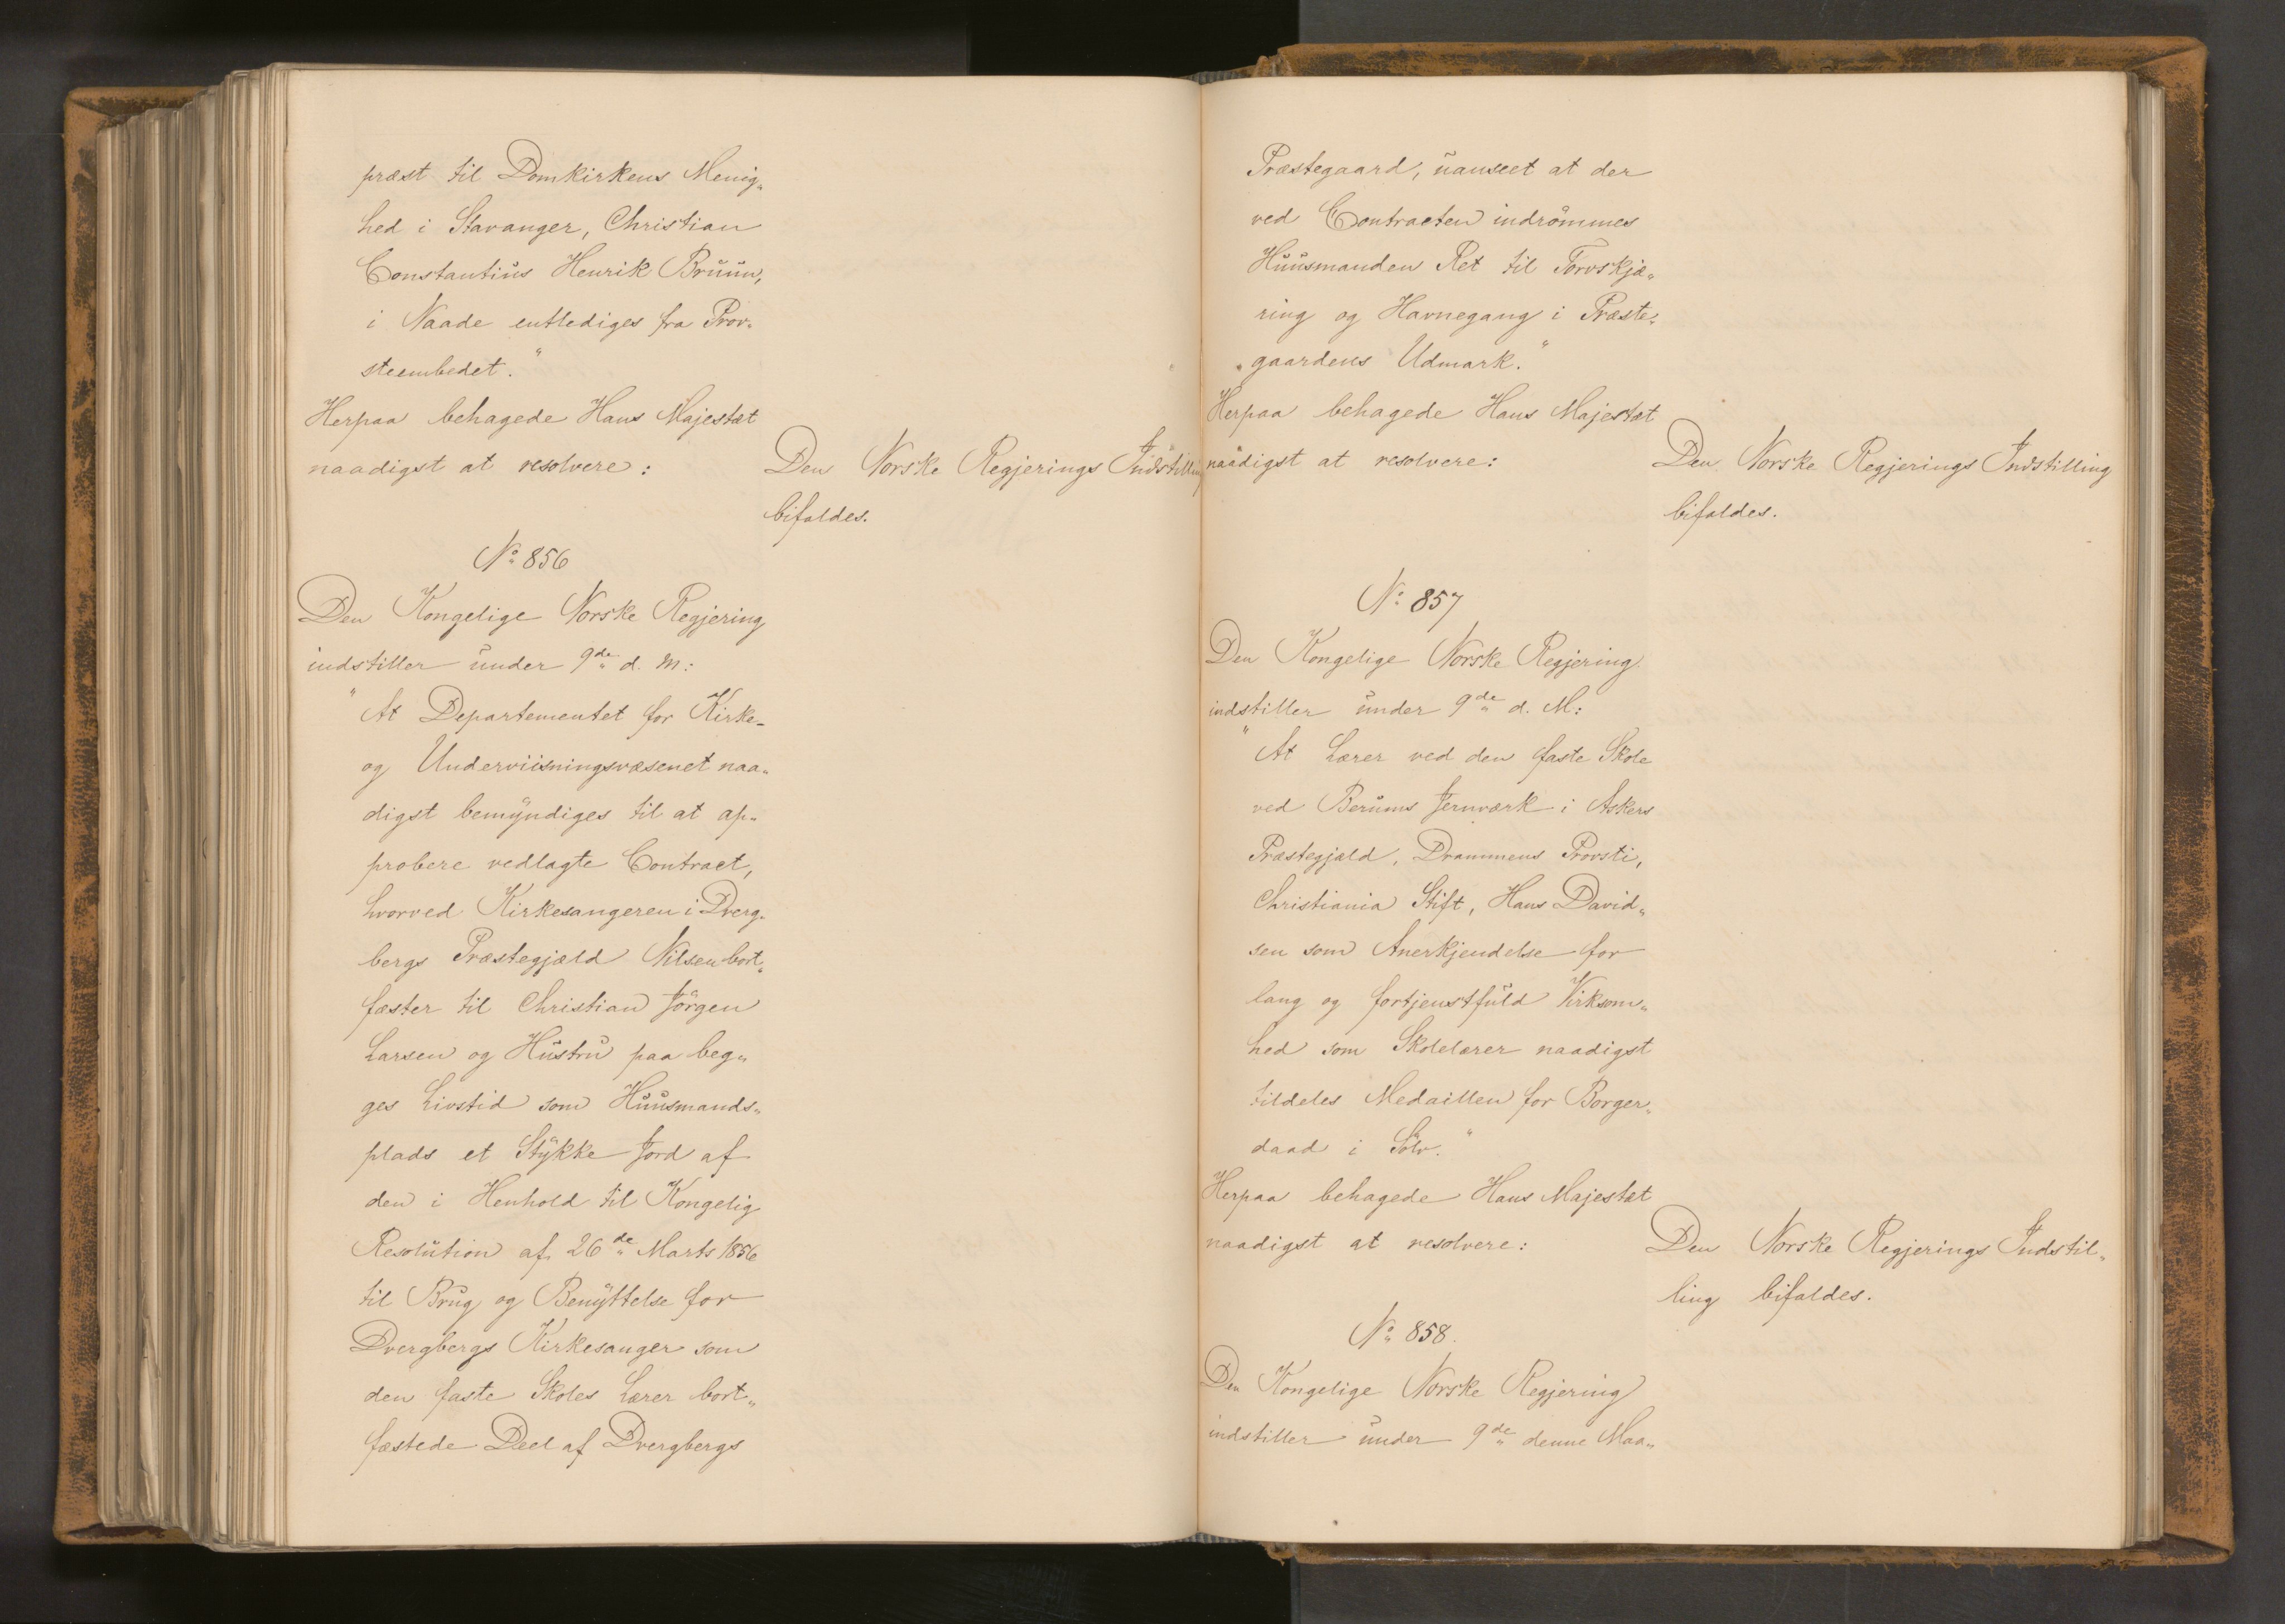 præst til Domkirkens Menig„
hed i Stavanger, Christian
Constantius Henrik Bruun,
i Naade entlediges fra Prov„
steembedet."
Herpaa behagede Hans Majestæt
naadigst at resolvere:
Den Norske Regjerings Indstilling
bifaldes.
No 856
Den Kongelige Norske Regjering
indstiller under 9de d. M:
"At Departementet for Kirke-
og Underviisningsvæsenet naa„
digst bemyndiges til at ap„
probere vedlagte Contract,
hvorved Kirkesangeren i Dverg„
bergs Præstegjæld Nilsen bort„
fæster til Christian Jörgen
Larsen og Hustru paa beg„
ges Livstid som Huusmands„
plads et Stykke Jord af
den i Henhold til Kongelig
Resolution af 26de Marts 1856
til Brug og Benyttelse for
Dvergbergs Kirkesanger som
den faste Skoles Lærer bort„
fæstede Deel af Dvergbergs
Præstegaard, uanseet at der
ved Contracten indrömmes
Huusmanden Ret til Torvskjæ„
ring og Havnegang i Præste„
gaardens Udmark."
Herpaa behagede Hans Majestæt
naadigst at resolvere:
Den Norske Regjerings Indstilling
bifaldes.
No 857
Den Kongelige Norske Regjering
indstiller under 9de d. M:
"At Lærer ved den faste Skole
ved Berums Jernværk i Askers
Præstegjæld, Drammens Provsti,
Christiania Stift, Hans David„
sen som Anerkjendelse for
lang og fortjenstfuld Virksom„
hed som Skolelærer naadigst
tildeles Medaillen for Borger„
daad i Sölv."
Herpaa behagede Hans Majestæt
naadigst at resolvere:
Den Norske Regjerings Indstil„
ling bifaldes.
No 858.
Den Kongelige Norske Regjering
indstiller under 9de denne Maa„